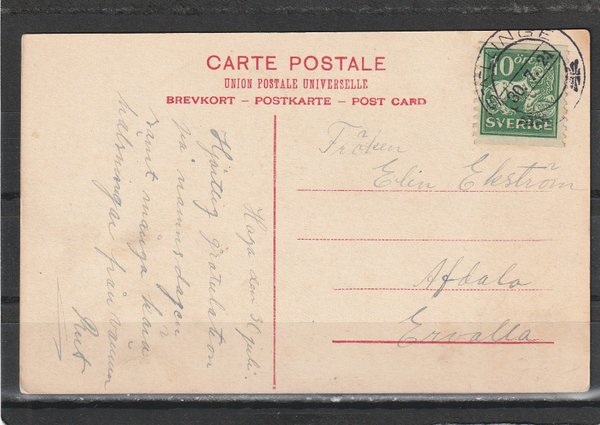 CARTE POSTALE
UNION POSTALE UNIVERSELLE
BREVKORT – POSTKARTE – POST CARD
Haga den 30 juli.
Hjärtlig gratulation
på namnsdagen
samt många kära
hälsningar från vännen
Rut
Fröken
Elin Ekström
Afdala
Ervalla
10 ÖRE
SVERIGE
30.7.2